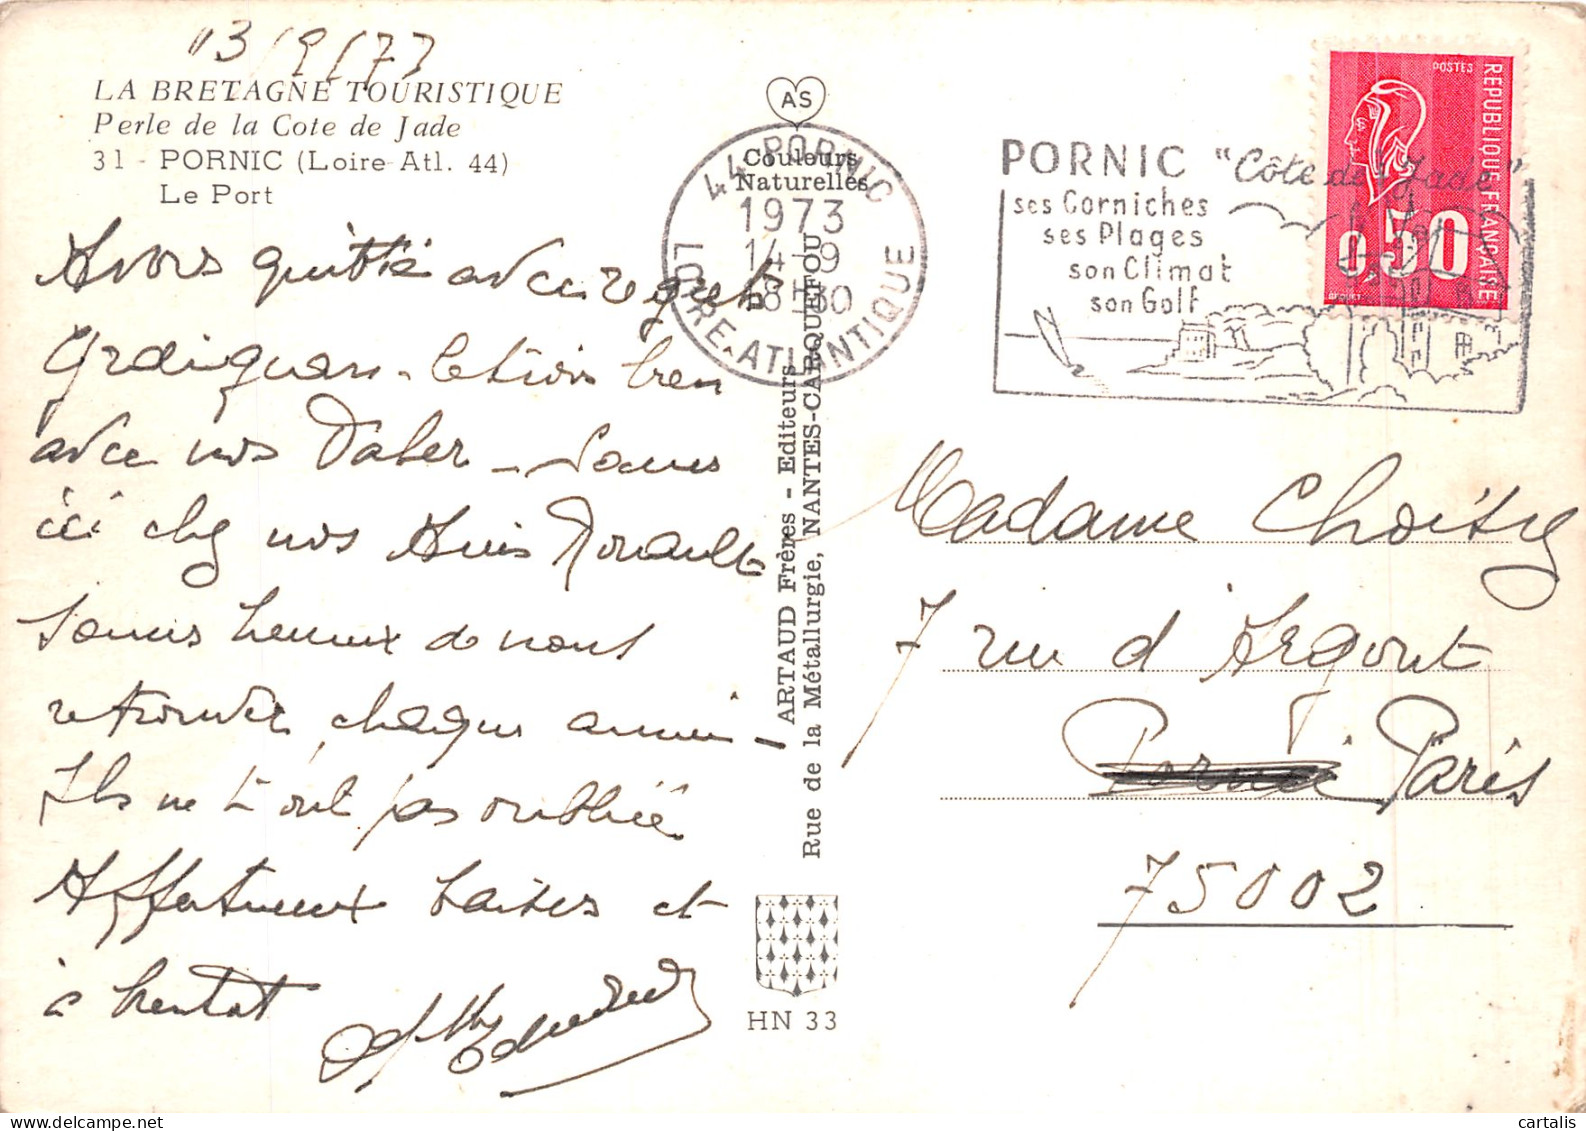 13/9/73
LA BRETAGNE TOURISTIQUE
Perle de la Cote de Jade
31 - PORNIC (Loire-Atl. 44)
Le Port
Avons quitté avec regrets
Gradignan -
avec nos Daber - Sommes
ici chez nos Amis Rouault
Sommes heureux de nous
retrouver chaque année -
Ils ne t'ont pas oubliée
Affectueux baisers et
à bientôt
AS
Couleurs
Naturelles
44 PORNIC
1973
14-9
18H30
LOIRE-ATLANTIQUE
ARTAUD Frères - Editeurs
Rue de la Métallurgie, NANTES-CARQUEFOU
HN 33
PORNIC "Côte de Jade"
ses Corniches
ses Plages
son Climat
son Golf
POSTES
REPUBLIQUE FRANÇAISE
0,50
BEQUET
Madame Choisy
7 rue d'Argout
Paris
75002
cartalis